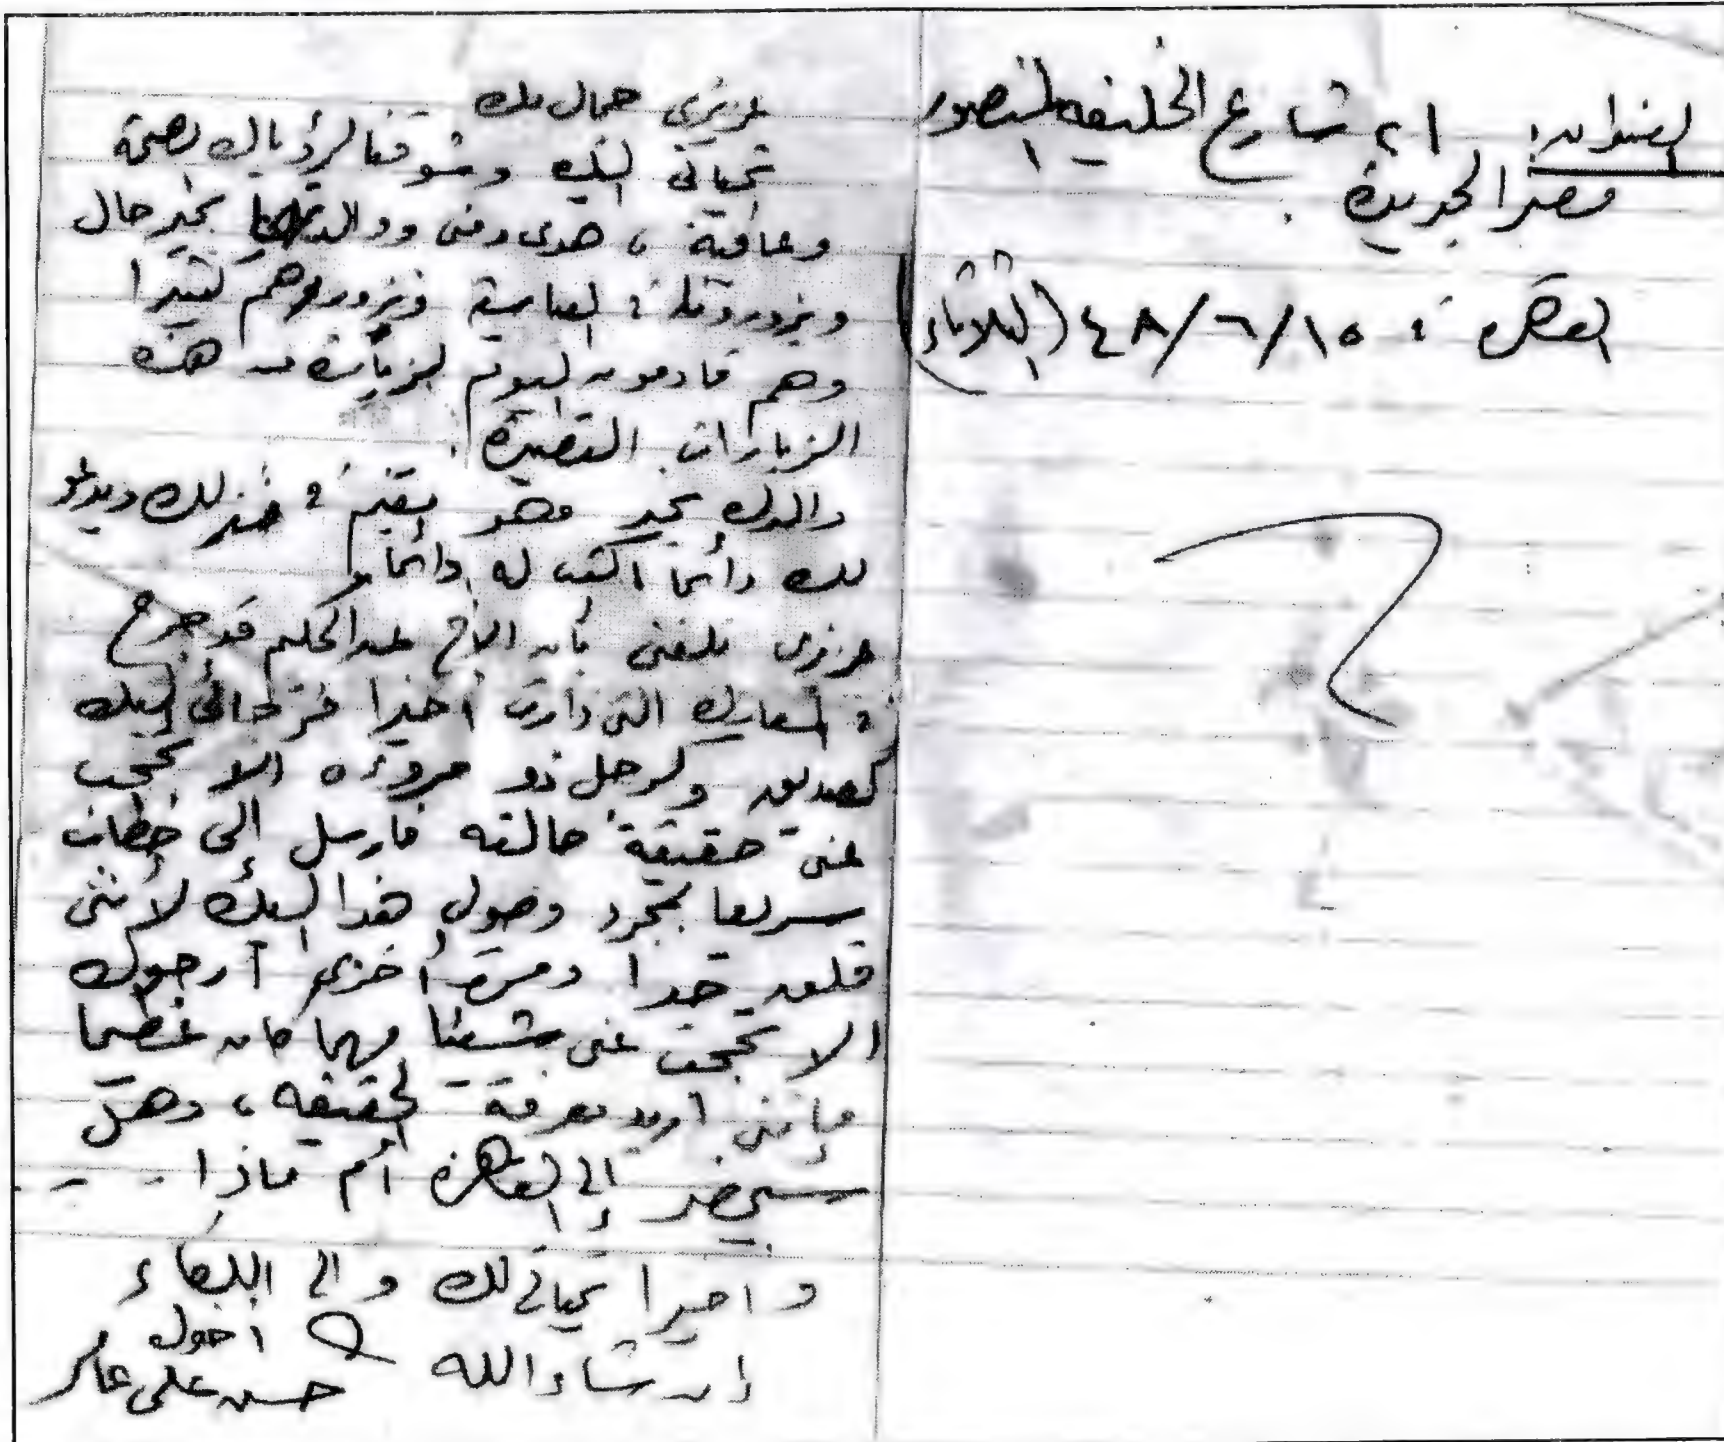 العنوان: ٢١ شارع الخليفه المنصور
مصر الجديدة.
العصر: ١٥/٦/٤٨ (الثلاثاء)
عزيزى جمال بك
تحياتى إليك وشوقنا لرؤياك بصحة
وعافية، هدى ومنى ووالدتهما بخير حال
ويزوروننا فى العباسية ونزورهم كثيرا
وهم قادمون اليوم لزيارة من هذه
الزيارات القصيرة.
والدك بخير وهو يقيم فى منزلك ويدعو
لك دائما اكتب له دائما.
عزيزى بلغنى بأن الأخ عبدالحكيم قد جرح
فى المعارك التى دارت أخيرا فرجائى إليك
كصديق وكرجل ذو مروءه الا تحجب
عنى حقيقة حالته فارسل إلى خطاب
سريعا بمجرد وصول هذا إليك لأننى
قلق جدا ومرة أخرى أرجوك
الا تحجب عنى شيئا مهما كان عظيما
فإننى اريد معرفة الحقيقه، وهل
سيحضر إلى القاهرة أم ماذا - -
واخيرا تحياتى لك والى اللقاء
إن شاء الله
اخوك
حسن على عامر